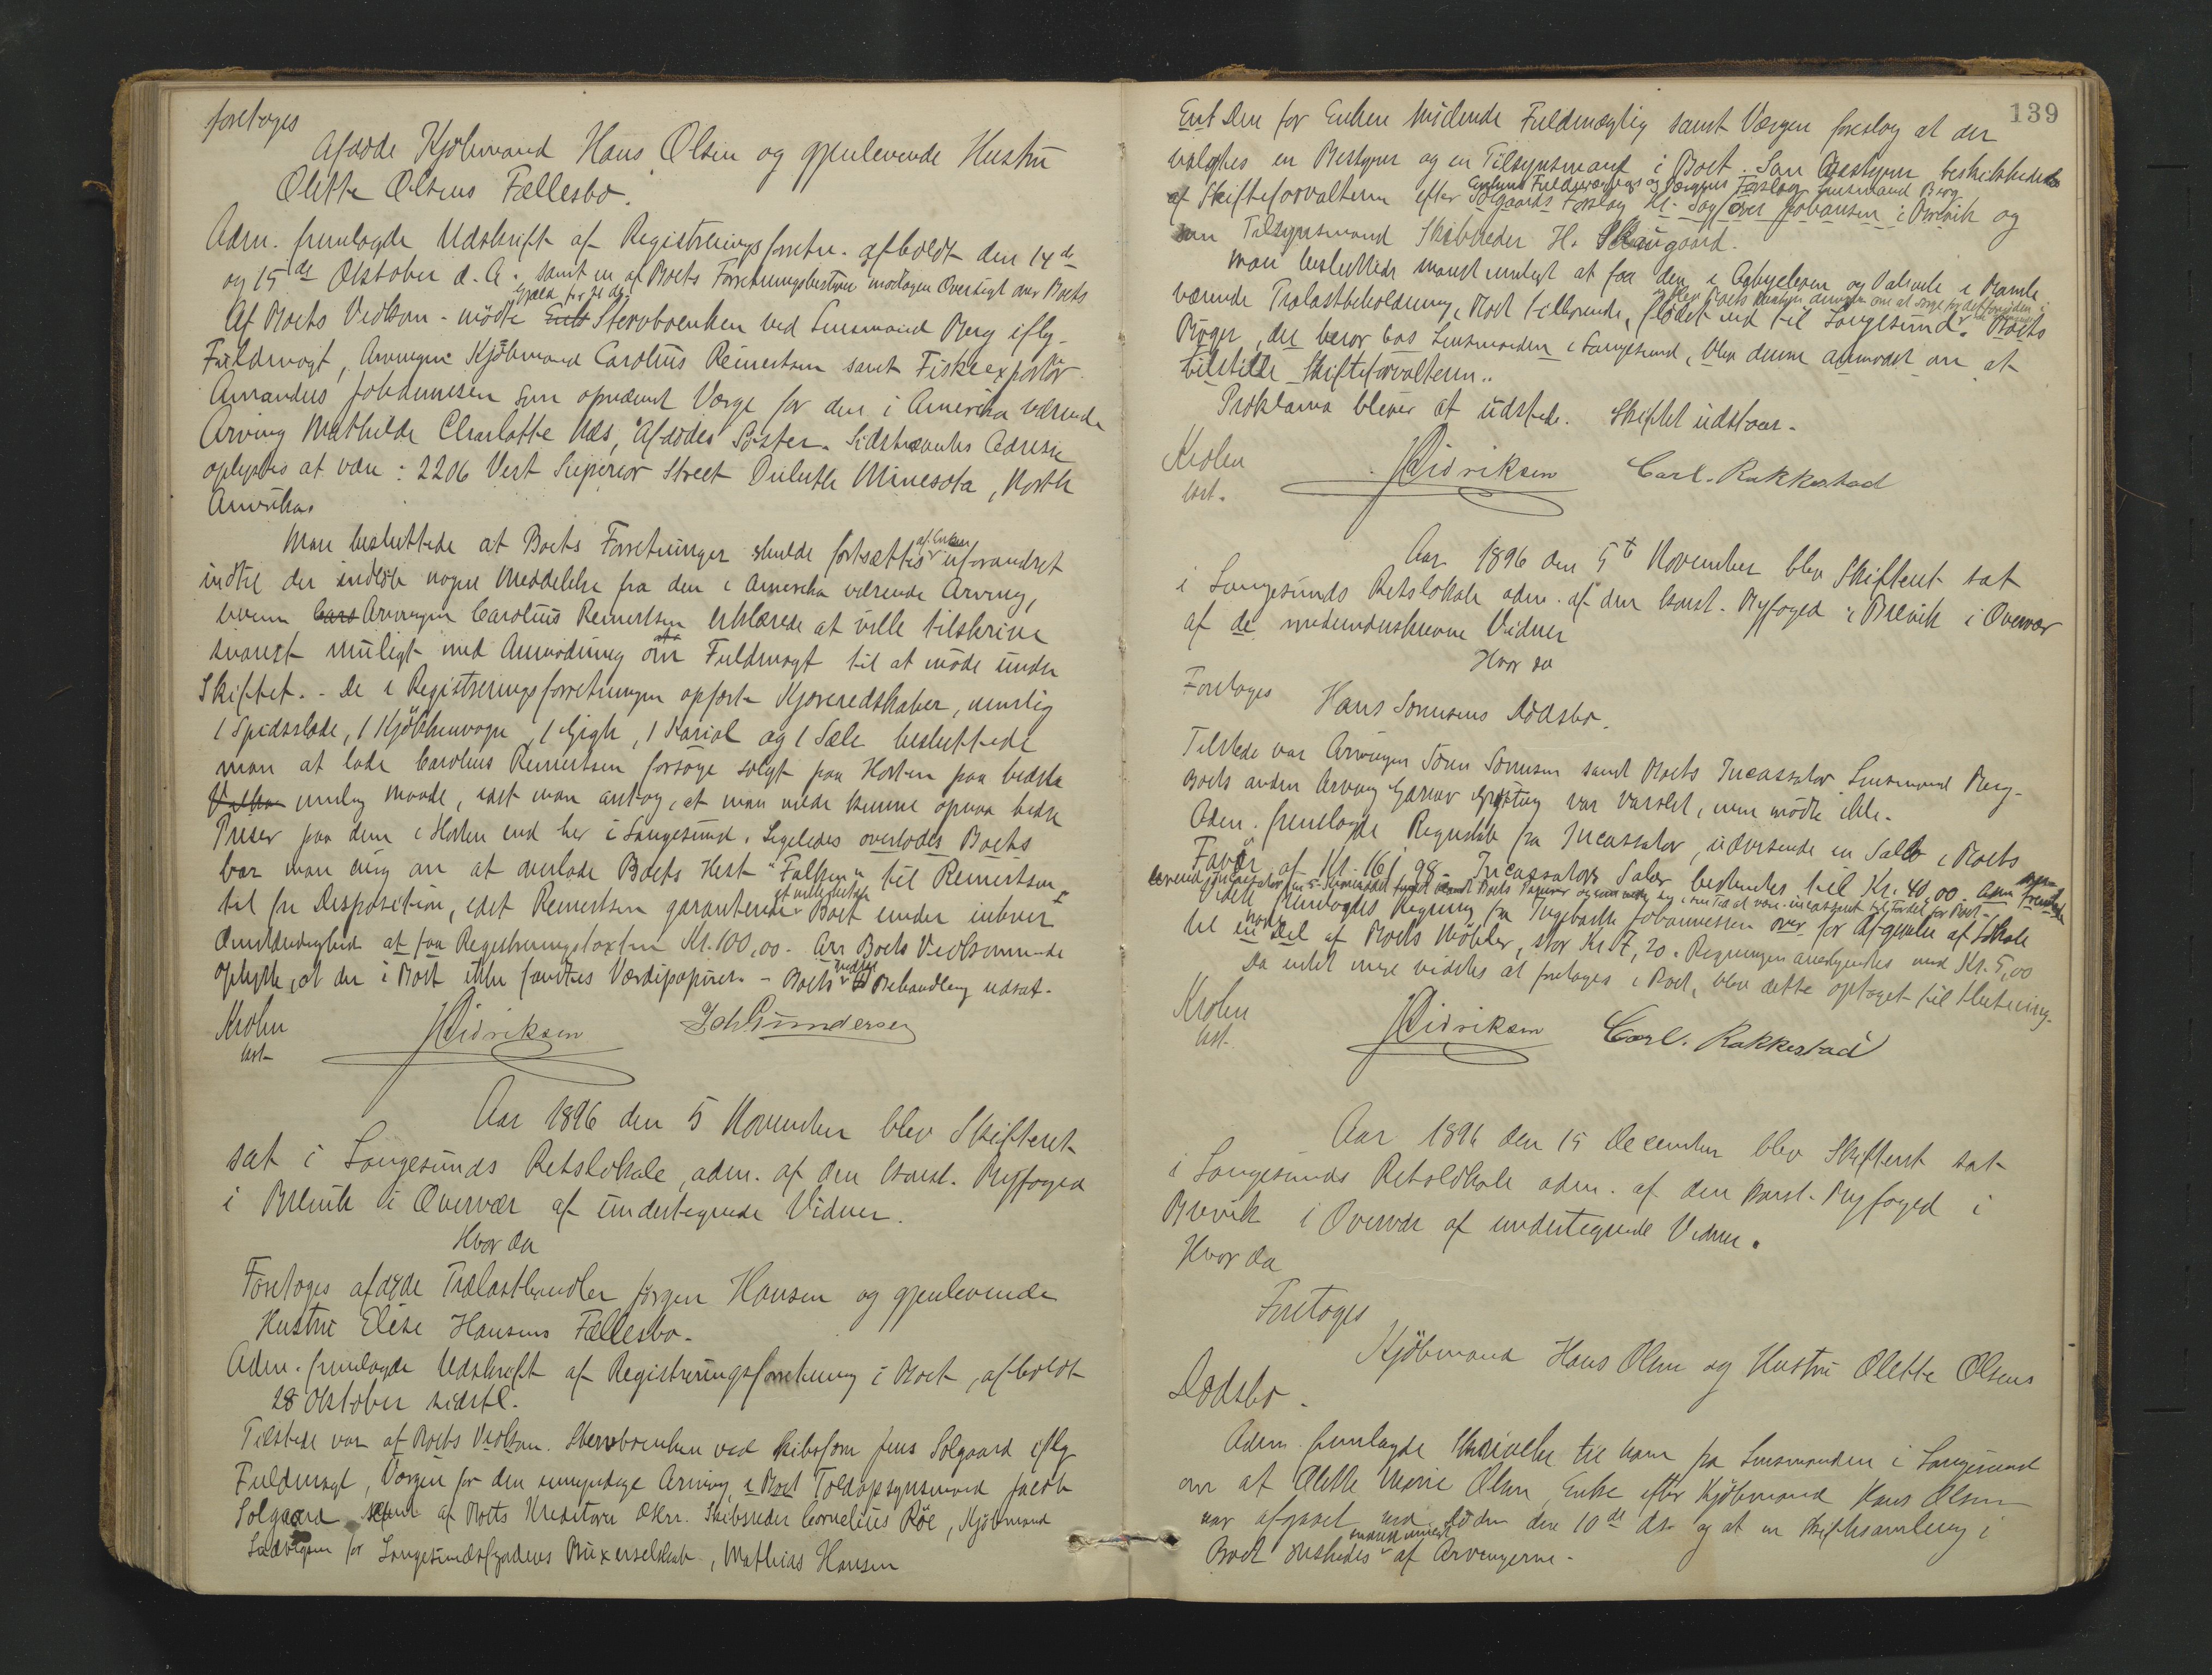 foretoges
Afdöde Kjöbmand Hans Olsen og gjenlevende Hustru
Olette Olsens Fællesbo.
Adm. fremlagde Udskrift af Registreringsforretn. afholdt den 14de
og 15de Oktober d. A. samt en af Boets Forretningsbestyrer modtagen Oversigt over Boets
Gjæld
Af Boets Vedkom. mödte Enk Stervboenken ved Lensmand Berg iflg.
Fuldmagt, Arvingen Kjöbmand Carolius Reinertsen samt Fiskeexportör
Amandus Johannesen som opnævnt Værge for den i Amerika værende
Arving Mathilde Charlotte Næs, Afdödes Söster. Sidstnævntes Adresse
oplystes at være: 2206 Vest Superior Street Duluth Minesota, North
Amerika.
Man besluttede at Boets Forretninger skulde fortsættes af Enken uforandret
indtil der indlöb nogen Meddelelse fra den i Amerika værende Arving,
hvem Caro Arvingen Carolius Reinertsen erklærede at ville tilskrive
snarest muligt med Anmodning om Fuldmagt til at möde under
Skiftet. - De i Registreringsforretningen opförte Kjöreredskaber, nemlig
1 Spidsslæde, 1 Kjökkenvogn, 1 Gigh, 1 Kariol og 1 Sæle besluttede
man at lade Carolius Reinertsen forsöge solgt paa Horten paa bedste
mulig Maade, idet man antog, at man vilde kunne opnaa bedre
Priser paa dem i Horten end her i Langesund. Ligeledes overlodes Boets
bar man enig om at overlade Boets Hest "Falken" til Reinertsen
til fri Disposition, idet Reinertsen garanterede Boet under enhver
Omstændighed at faa Registreringstaxten Kr. 100,00. Arv Boets Vedkommende
oplyste, at der i Boet ikke fandtes Værdipapirer. - Boets videre Behandling udsat.
Krohn HDidriksen Joh Gundersen
kst.
Aar 1896 den 5 November blev Skifteret
sat i Langesunds Retslokale, adm. af den konst. Byfoged
i Brevik i Overvær af undertegnede Vidner.
Hvor da
Foretoges afdöde Trælasthandler Jörgen Hansen og gjenlevende
Hustru Elise Hansens Fællesbo.
Adm. fremlagde Udskrift af Registreringsforretning i Boet, afholdt
28 Oktober sidstl.
Tilstede var af Boets Vedkom. Stervboenken ved Skibsförer Jens Solgaard iflg
Fuldmagt, Værgen for den umyndige Arving i Boet Toldopsynsmand Jacob
Solgaard samt af Boets Kreditorer D'Hrr. Skibsreder Cornelius Röe, Kjöbmand
Ludvigsen for Langesundsfjordens Buxerselskab, Mathias Hansen
139
Ent Den for Enken mödende Fuldmægtig samt Værgen foreslog at der
valgtes en Bestyrer og en Tilsynsmand i Boet. Som Bestyrer beskikkedes
Enkens Fuldmægtigs og Værgens Forslag Lensmand Berg
af Skifteforvalteren efter Solgaards Forslag Hr. Sagförer Johansen i Brevik og
som Tilsynsmand Skibsreder H. Skougaard.
Man besluttede snarest muligt at faa den i og Valsvik i Bamle
værende Trælastbeholdning, Boet tilhörende, flödet ind til Langesund. Boets
Böger, der beror hos Lensmanden i Langesund, blev denne anmodet om at
tilstille Skifteforvalteren.
Proklama bliver at udstede. Skiftet udstaar.
Krohn HDidriksen Carl. Rakkestad
kst.
Aar 1896 den 5te November blev Skifteret sat
i Langesunds Retslokale adm. af den konst. Byfoged i Brevik i Overvær
af de medunderskrevne Vidner
Hvor da
Foretoges Hans Sörensens Dödsbo.
Tilstede var Arvingen Sören Sörensen samt Boets Incassator Lensmand Berg.
Boets anden Arving var varslet, men mödte ikke.
Adm. fremlagde Regnskab fra Incassator, udvisende en Saldo i Boets
Favör af Kr. 161,98. Incassators Salær bestemtes til Kr. 40,00.
Videre fremlagdes Regning fra Ingebarth Johannessen over for Afgivelse af Lokale
til en Del af Boets Möbler, stor Kr. 7,20. Regningen anerkjendtes med Kr. 5,00
Da intet mere vidstes at foretages i Boet, blev dette optaget til Slutning.
Krohn HDidriksen Carl. Rakkestad
kst.
Aar 1896 den 15 December blev Skifteret sat
i Langesunds Retslokale adm. af den konst. Byfoged i
Brevik i Overvær af undertegnede Vidner.
Hvor da
Foretoges
Kjöbmand Hans Olsen og Hustru Olette Olsens
Dödsbo.
Adm. fremlagde Skrivelse til ham fra Lensmanden i Langesund
om at Olette Marie Olsen, Enke efter Kjöbmand Hans Olsen
var afgaaet ved Döden den 10de ds. og at en Skiftesamling i
Boet önskedes snarest muligt af Arvingerne.